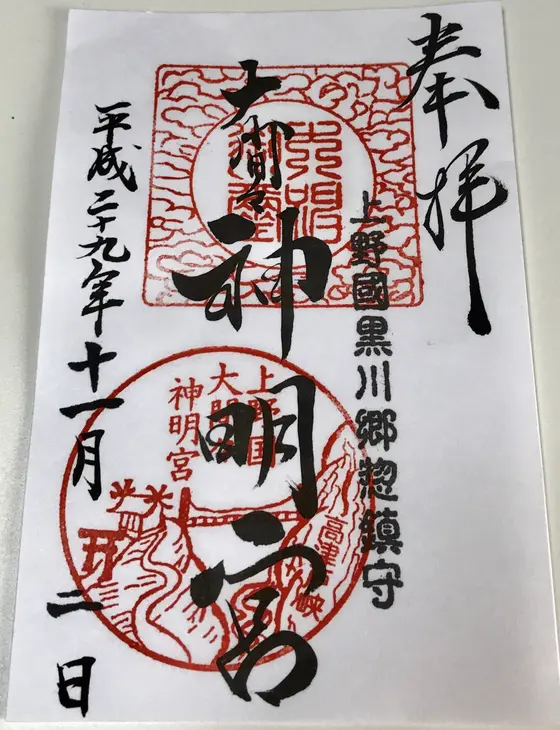 奉拝
上野國黒川郷惣鎮守
大間々
神明宮
平成二十九年十一月二日
上野国
大間々
神明宮
高津戸峡